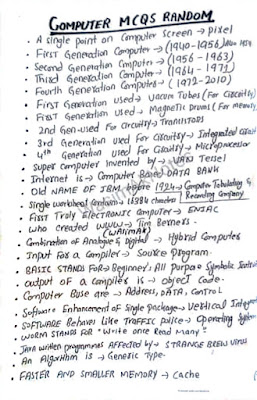 COMPUTER MCQS RANDOM
• A single point on Computer Screen → pixel
• First Generation Computer → (1940-1956)
• Second Generation Computer → (1956-1963)
• Third Generation Computer → (1964-1971)
• Fourth Generation Computer → (1972-2010)
• First Generation used → Vacume Tubes (For Circuitry)
• First Generation used → Magnetic Drums (For Memory)
• 2nd Gen. used For Circuitry → Transistors
• 3rd Generation used For Circuitry → Integrated Circuit
• 4th Generation used For Circuitry → Microprocessor
• Super Computer Invented by → Tessel
• Internet is → Computer Based DATA BANK
• Old NAME OF IBM before 1924 → Computer Tabulating & Recording Company
• Single workbook contain → 16384
• First Truly Electronic Computer → ENIAC
• who created WWW → Tim Berners.
• Combination of Analogue & Digital → Hybrid Computer
• Input for a Compiler → Source Program
• BASIC STANDS FOR → Beginner's All Purpose Symbolic
• output of a Compiler is → object Code.
• Computer Buse are → Address, DATA, Control
• Software Enhancement of Single Package → Vertical
• SOFTWARE Behaves like TRAFFIC police → Operating
• WORM STANDS FOR "Write once Read Many"
• JAVA written programmes AFFected by → STRANGE BREW VIRUS
• An Algorithm is → Generic Type.
• FASTER AND SMALLER MEMORY → Cache